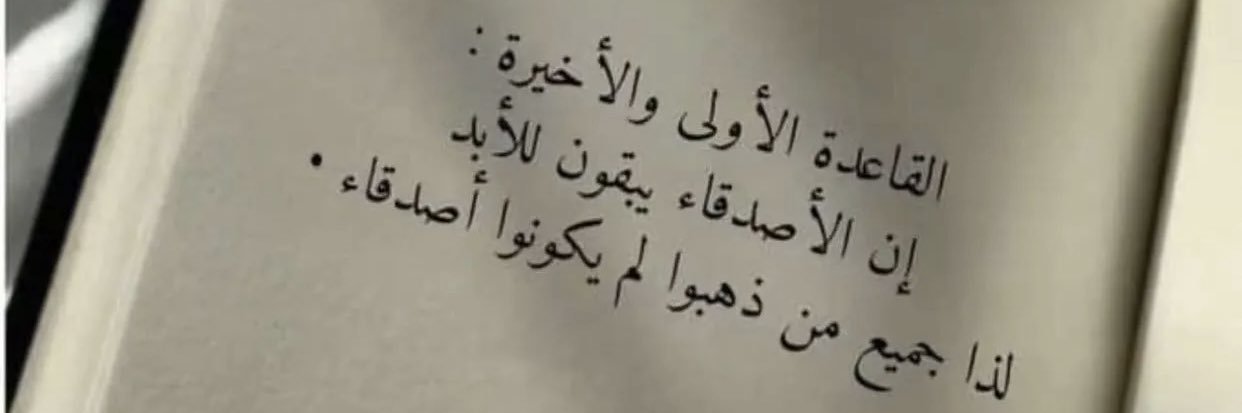 القاعدة الأولى والأخيرة :
إن الأصدقاء يبقون للأبد
لذا جميع من ذهبوا لم يكونوا أصدقاء .